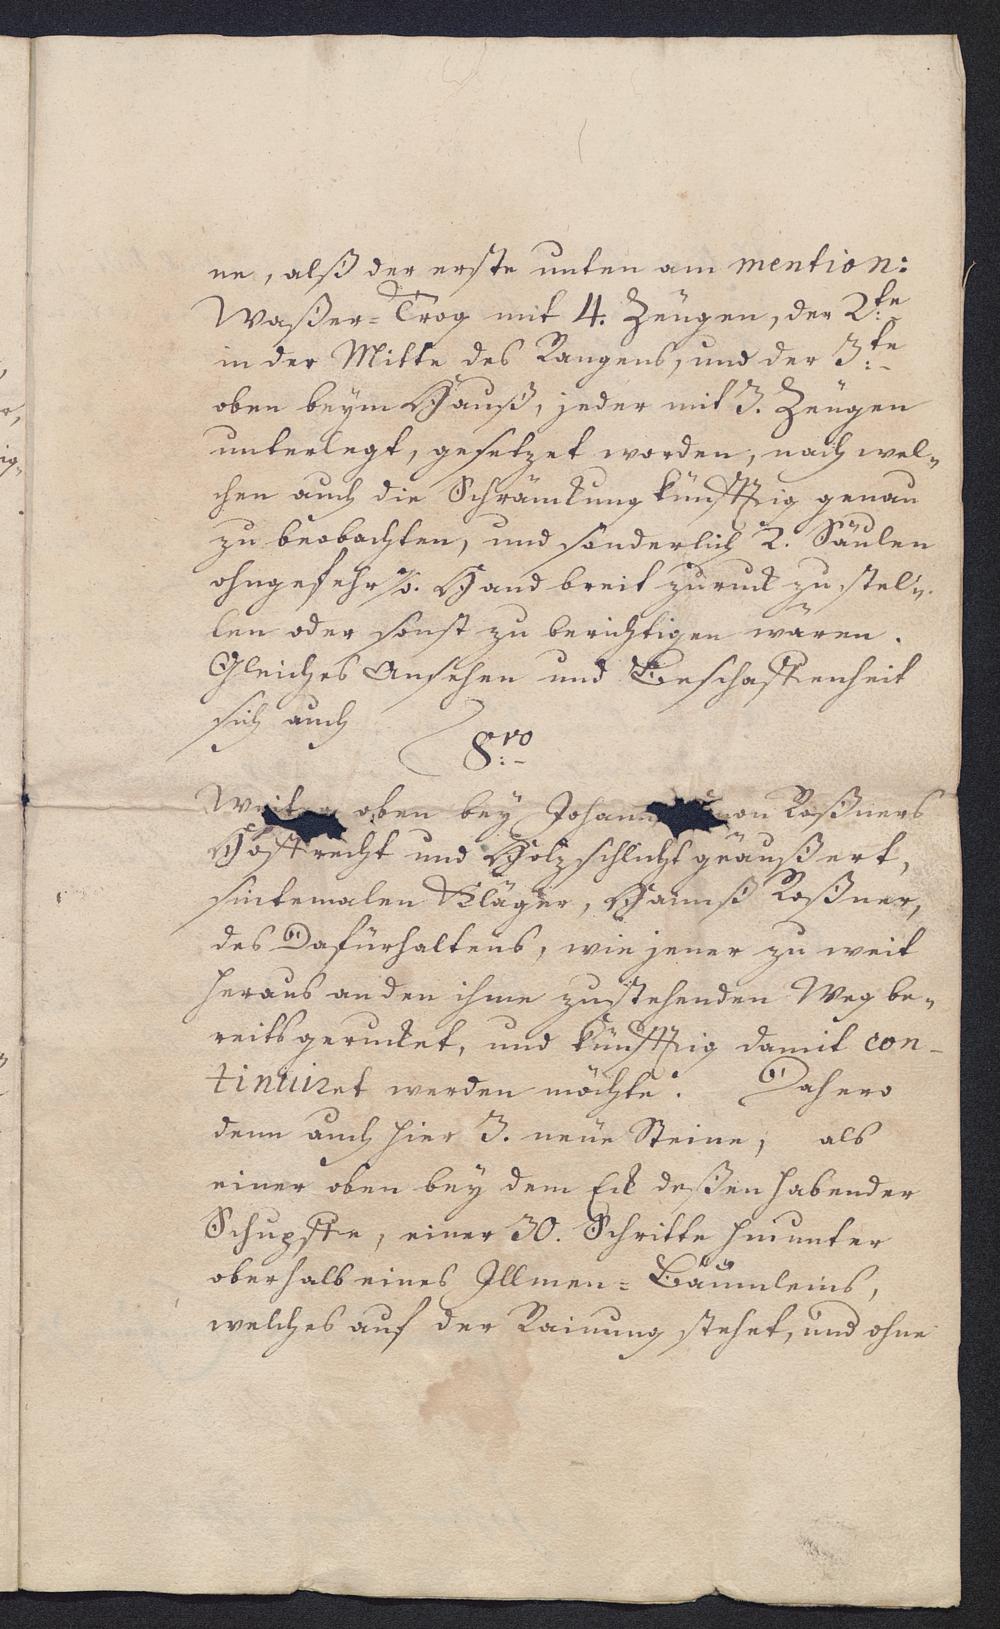 ne, alß der erste unten am mention:
Waßer=Trog mit 4. Zeügen, der 2:te
in der Mitte des Rangens, und der 3:te
oben beym Hauß, jeder mit 3. Zeügen
unterlegt, gesetzet worden, nach wel=
chen auch die Schränkung künfftig genau
zu beobachten, und sonderlich 2. Säulen
ohngefehr Hand breit zuruck zu stel=
len oder sonst zu berichtigen wären.
Gleiches Ansehen und Beschaffenheit
sich auch
8:vo
oben bey Johann Roßners
Hofrecht und Holzschlicht geäußert,
sintemalen Kläger, Hannß Roßner,
des Dafürhaltens, wie jener zu weit
heraus an den ihme zustehenden Weg be=
reits gerucket, und künfftig damit con-
tinuiret werden möchte. Dahero
denn auch hier 3. neüe Steine, als
einer oben bey dem Eck deßen habender
Schupffe, einer 30. Schritte hinunter
oberhalb eines Illmen=Bäumleins,
welches auf der Rainung stehet, und ohne